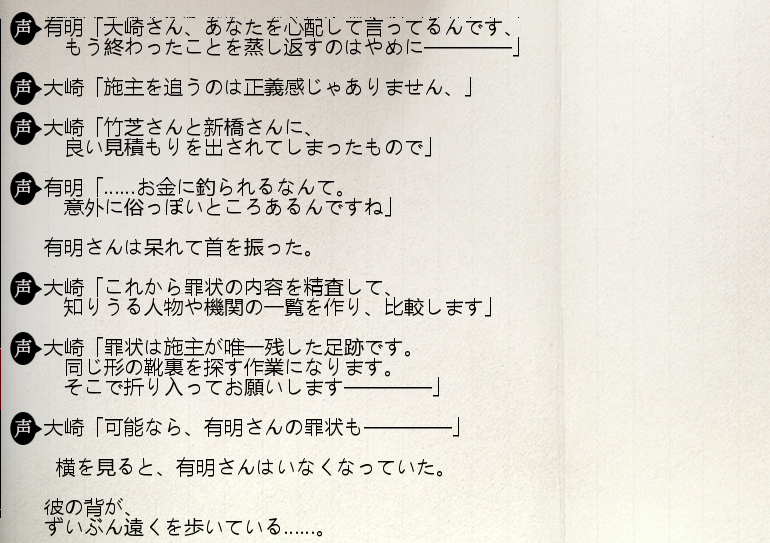 声 有明「大崎さん、あなたを心配して言ってるんです、
もう終わったことを蒸し返すのはやめに―――――」
声 大崎「施主を追うのは正義感じゃありません、」
声 大崎「竹芝さんと新橋さんに、
良い見積もりを出されてしまったもので」
声 有明「……お金に釣られるなんて。
意外に俗っぽいところあるんですね」
有明さんは呆れて首を振った。
声 大崎「これから罪状の内容を精査して、
知りうる人物や機関の一覧を作り、比較します」
声 大崎「罪状は施主が唯一残した足跡です。
同じ形の靴裏を探す作業になります。
そこで折り入ってお願いします―――――」
声 大崎「可能なら、有明さんの罪状も―――――」
横を見ると、有明さんはいなくなっていた。
彼の背が、
ずいぶん遠くを歩いている……。